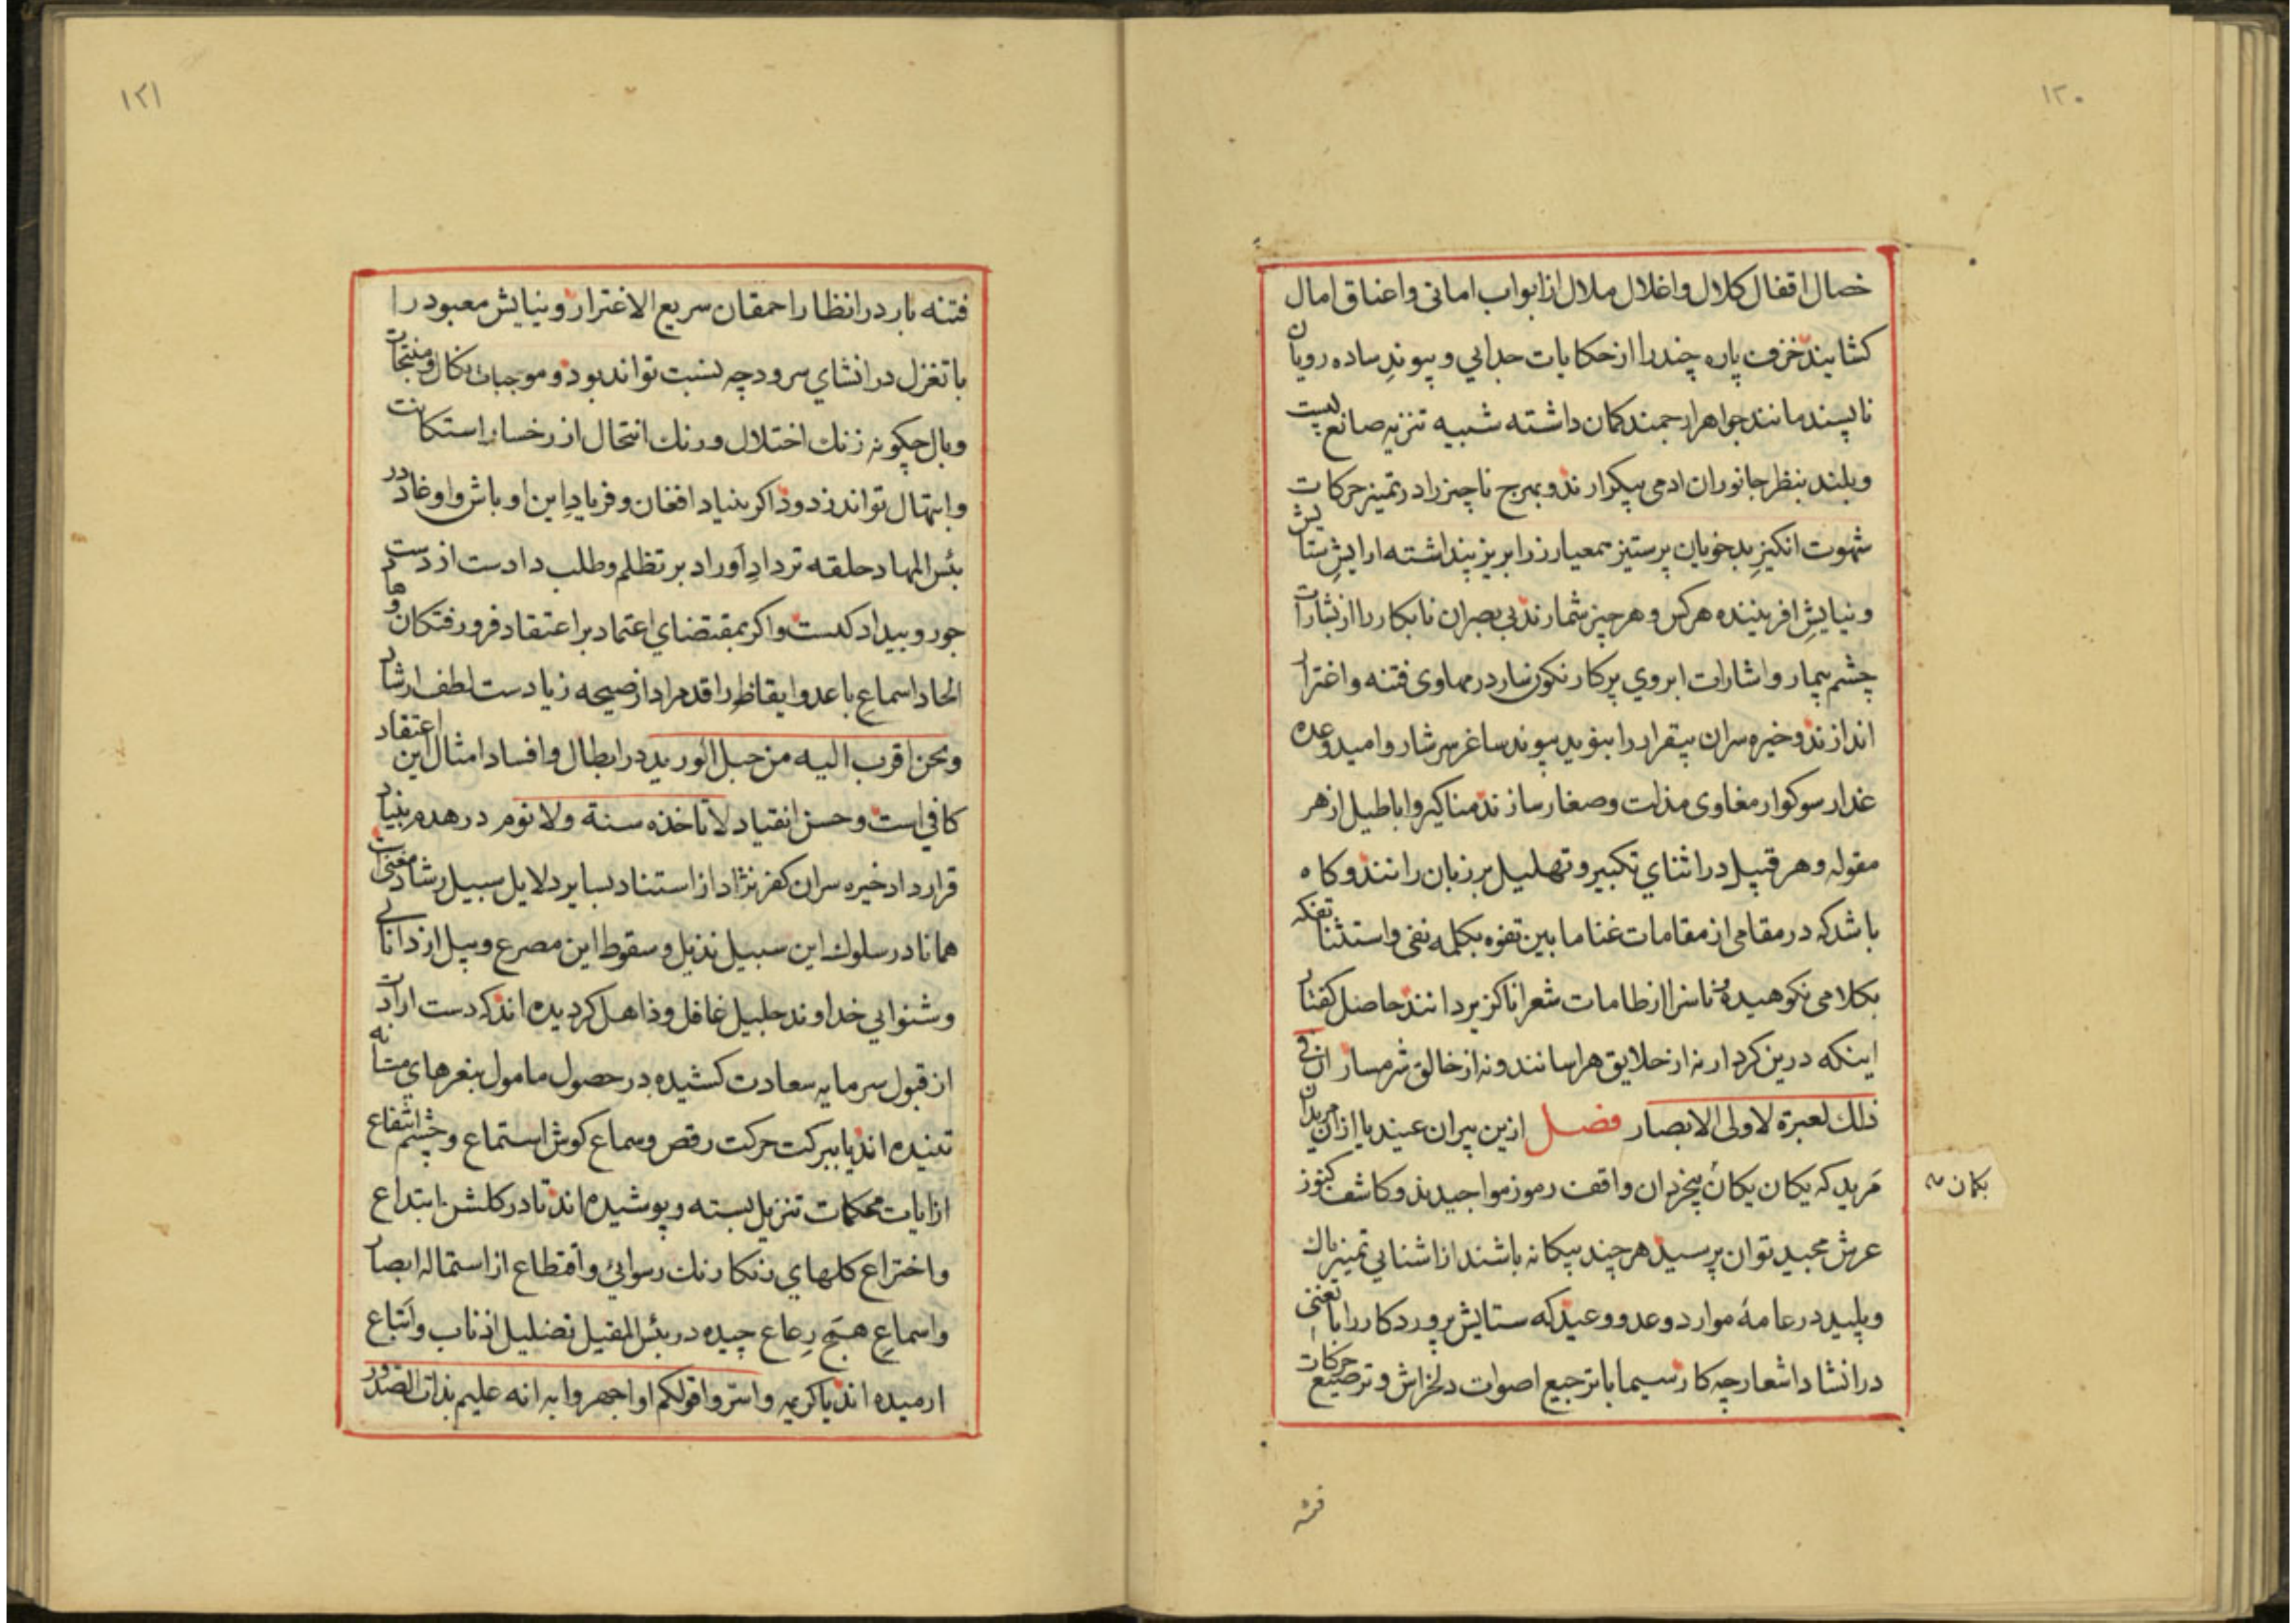 ۱۲۰
خصال اقفال کلال واغلال ملال از ابواب امانی واعناق امال
کشایند خزف پاره چند را از حکایات جدایی و پیوندِ ساده رویان
ناپسند مانند جواهر ارجمند کمان داشته شبیه تنزیه صانع پست
وبلند بنظر جانوران ادمی پیکر ارند و بهرج ناچیز را در تمیز حرکات
شهوت انکیزِ بدخویان پرستیز معیار زر ابریز پنداشته ارایشِ ستایش
ونیایشِ افریننده هرکس و هرچیز شمارند بی بصران نابکار را از بشارات
چشم بیمار واشارات ابروی پرکار نکونسار در مهاوی فتنه واغترار
اندازند وخیره سران بیقرار را بنوید پیوند ساغر سرشار وامید وعده
غدار سوکوار مغاوی مذلت وصغار سازند مناکیر واباطیل از هر
مقوله وهر قبیل در اثنای تکبیر وتهلیل بر زبان رانند و کاه
باشد که در مقامی از مقامات غنا مابین تفوه بکلمه نفی واستثنا تفکه
بکلامی نکوهیده وناسزا از طامات شعرا ناکزیر دانند حاصل کفتار
اینکه درین کردار نه از خلایق هراسانند ونه از خالق شرمسار ان فی
ذلك لعبرة لاولی الابصار فصل ازین پیران عنید یا ازان مریدان
مَرید که یکان یکان بیخردان واقف رموز مواجیدند و کاشف کنوز
بکمان
عرش مجید توان پرسید هرچند بیکانه باشند از اشنایی تمیز پاك
وپلید در عامهٔ موارد وعد و وعید که ستایش پروردکار را با تغنی
در انشاد اشعار چه کار سیما با ترجیع اصوات دلخراش و ترصیع حرکات
فتنه
۱۲۱
فتنه بار در انظار احمقان سریع الاغترار ونیایش معبود را
با تغزل در انشای سرود چه نسبت تواند بود وموجبات نکال ومنتجات
وبال چکونه زنك اختلال ورنك انتحال از رخسار استکانت
وابتهال تواند زدود اکر بنیاد افغان و فریادِ این اوباش واوغاد در
بئس المهاد حلقه تردادِ اَوراد بر تظلم وطلب دادست از دست
جور وبیداد کیست واکر بمقتضای اعتماد بر اعتقاد فرورفتکان وهاد
الحاد اسماعِ باعد وایقاظِ راقد مراد از صیحه زیادست لطف ارشاد
ونحن اقرب الیه من حبل الورید در ابطال وافساد امثال این اعتقاد
کافی است وحسن انقیاد لا تاخذه سنة ولا نوم در هدم بنیاد
قرارداد خیره سران کفر نژاد از استناد بسایر دلایل سبیل رشاد مغنی است
همانا در سلوك این سبیل نذیل وسقوط این مصرع وبیل از دانایی
وشنوایی خداوند جلیل غافل وذاهل کردیده اند که دست ارادت
از قبول سرمایه سعادت کشیده در حصول مامول بنغرهای مستانه
تنیده اند یا ببرکت حرکت رقص وسماع کوش استماع وچشم انتفاع
از ایات محکمات تنزیل بسته وپوشیده اند تا در کلشن ابتداع
واختراع کلهای رنکارنك رسوائی واقطاع از استماله ابصار
واسماعِ همجِ رِعاع چیده در بئس المقیل تضلیل اذناب واَتباع
ارمیده اند یا کریمه واسرّوا قولکم او اجهروا به انه علیم بذات الصدور